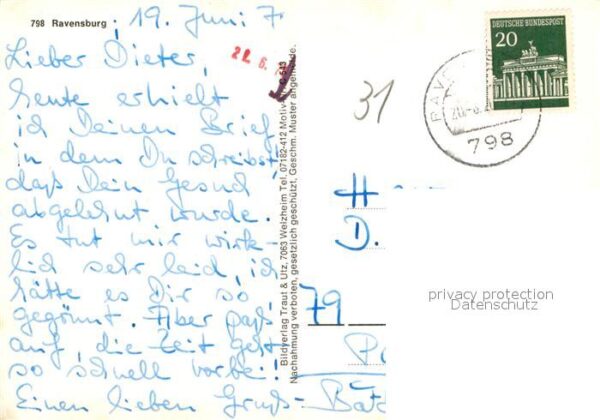 798 Ravensburg , 19. Juni 7
Lieber Dieter,
heute erhielt
ich Deinen Brief
in dem Du schreibst
daß Dein Gesuch
abgelehnt wurde.
Es tut mir wirk-
lich sehr leid, ich
hätte es Dir so
gegönnt. Aber paß
auf, die Zeit geht
so schnell vorbei!
Einen lieben Gruß-
22.6.
Bildverlag Traut & Utz, 7063 Welzheim Tel. 07182-412 Motiv-
Nachahmung verboten, gesetzlich geschützt, Geschm. Muster angemeldet.
31
DEUTSCHE BUNDESPOST
20
798
H
D.
79
privacy protection
Datenschutz